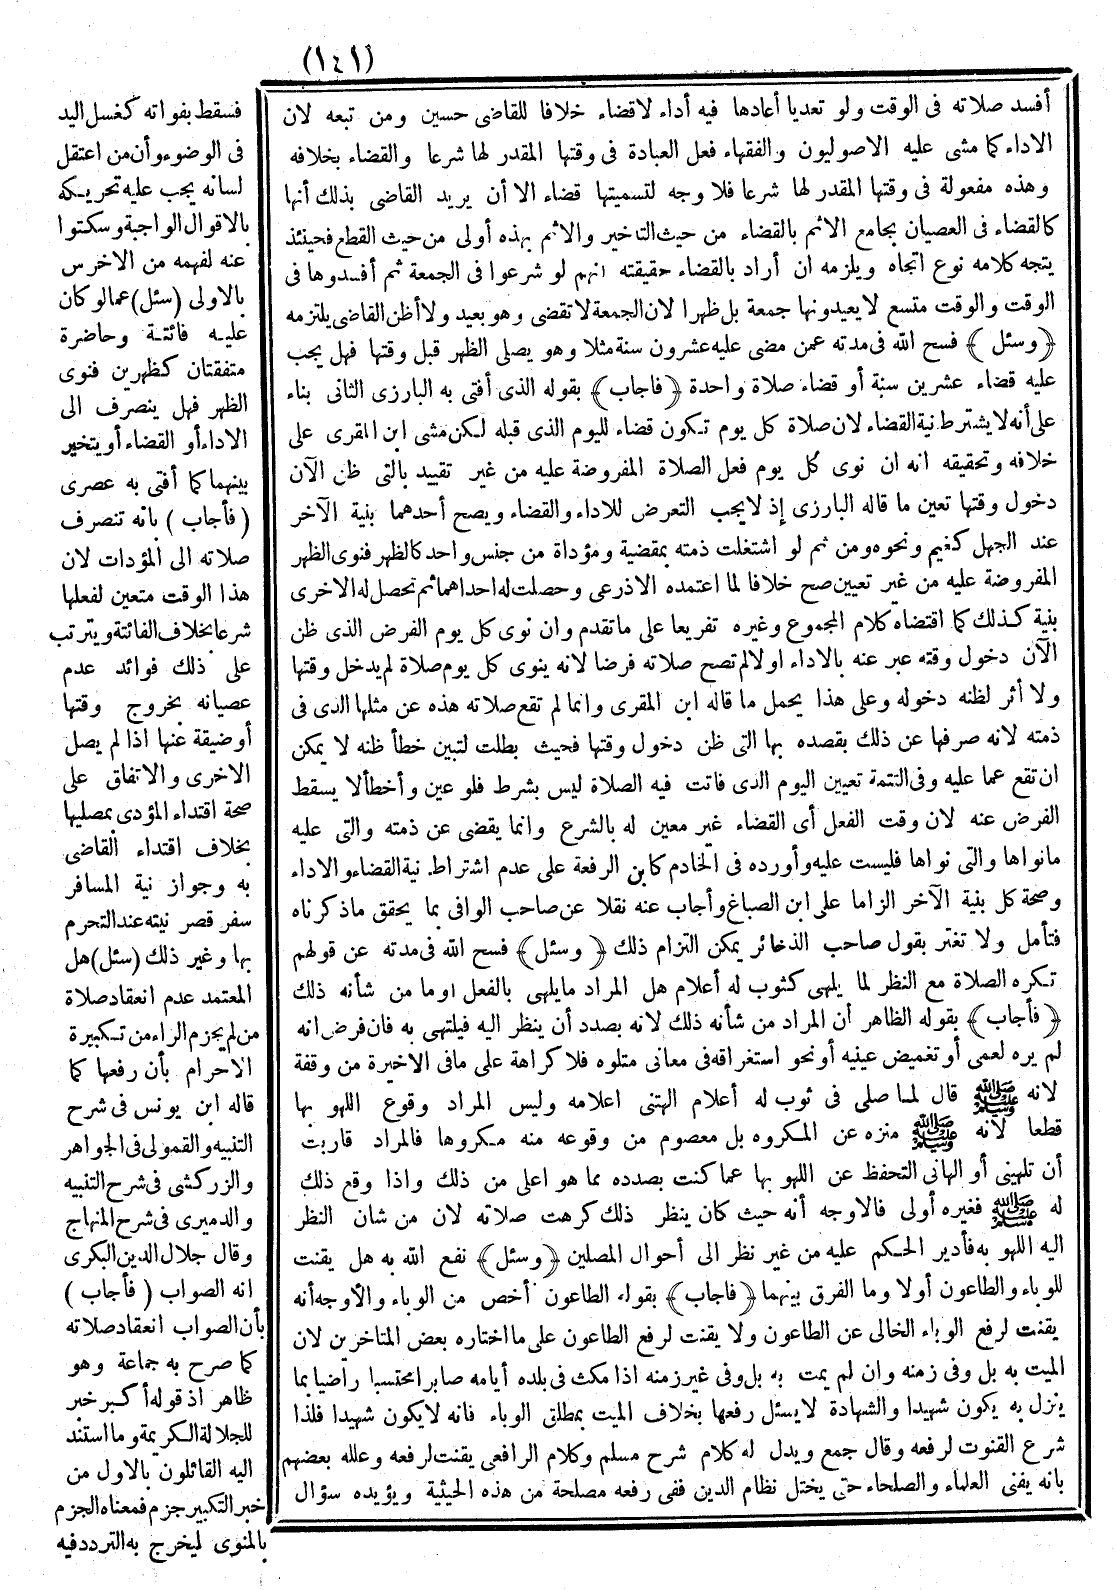 (١٤١)
أفسد صلاته فى الوقت ولو تعديا أعادها فيه أداء لاقضاء خلافا للقاضى حسين ومن تبعه لان
الاداء كما مشى عليه الاصوليون والفقهاء فعل العبادة فى وقتها المقدر لها شرعا والقضاء بخلافه
وهذه مفعولة فى وقتها المقدر لها شرعا فلا وجه لتسميتها قضاء الا أن يريد القاضى بذلك أنها
كالقضاء فى العصيان بجامع الاثم بالقضاء من حيث التاخير والاثم بهذه أولى من حيث القطع فحينئذ
يتجه كلامه نوع اتجاه ويلزمه ان أراد بالقضاء حقيقته انهم لو شرعوا فى الجمعة ثم أفسدوها فى
الوقت والوقت متسع لايعيدونها جمعة بل ظهرا لان الجمعة لاتقضى وهو بعيد ولا أظن القاضى يلتزمه
﴿وسئل﴾ فسح الله فى مدته عمن مضى عليه عشرون سنة مثلا وهو يصلى الظهر قبل وقتها فهل يجب
عليه قضاء عشرين سنة أو قضاء صلاة واحدة ﴿فاجاب﴾ بقوله الذى أفتى به البارزى الثانى بناء
على أنه لايشترط نية القضاء لان صلاة كل يوم تكون قضاء لليوم الذى قبله لكن مشى ابن المقرى على
خلافه وتحقيقه انه ان نوى كل يوم فعل الصلاة المفروضة عليه من غير تقييد بالتى ظن الآن
دخول وقتها تعين ما قاله البارزى إذ لايجب التعرض للاداء والقضاء ويصح أحدهما بنية الآخر
عند الجهل كغيم ونحوه ومن ثم لو اشتغلت ذمته بمقضية ومؤداة من جنس واحد كالظهر فنوى الظهر
المفروضة عليه من غير تعيين صح خلافا لما اعتمده الاذرعى وحصلت له احداهما ثم تحصل له الاخرى
بنية كذلك كما اقتضاه كلام المجموع وغيره تفريعا على ماتقدم وان نوى كل يوم الفرض الذى ظن
الآن دخول وقته عبر عنه بالاداء اولا لم تصح صلاته فرضا لانه ينوى كل يوم صلاة لم يدخل وقتها
ولا أثر لظنه دخوله وعلى هذا يحمل ما قاله ابن المقرى وانما لم تقع صلاته هذه عن مثلها الذى فى
ذمته لانه صرفها عن ذلك بقصده بها التى ظن دخول وقتها فحيث بطلت لتبين خطأ ظنه لا يمكن
ان تقع عما عليه وفى التتمة تعيين اليوم الذى فاتت فيه الصلاة ليس بشرط فلو عين وأخطأ لا يسقط
الفرض عنه لان وقت الفعل أى القضاء غير معين له بالشرع وانما يقضى عن ذمته والتى عليه
مانواها والتى نواها فليست عليه وأورده فى الخادم كابن الرفعة على عدم اشتراط نية القضاء والاداء
وصحة كل بنية الآخر الزاما على ابن الصباغ وأجاب عنه نقلا عن صاحب الوافى بما يحقق ماذكرناه
فتأمل ولا تغتر بقول صاحب الذخائر يمكن التزام ذلك ﴿وسئل﴾ فسح الله فى مدته عن قولهم
تكره الصلاة مع النظر لما يلهى كثوب له أعلام هل المراد مايلهى بالفعل اوما من شأنه ذلك
﴿فأجاب﴾ بقوله الظاهر أن المراد من شأنه ذلك لانه بصدد أن ينظر اليه فيلتهى به فان فرض انه
لم يره لعمى أو تغميض عينيه أو نحو استغراقه فى معانى متلوه فلا كراهة على مافى الاخيرة من وقفة
لانه ﷺ قال لما صلى فى ثوب له أعلام الهتنى اعلامه وليس المراد وقوع اللهو بها
قطعا لانه ﷺ منزه عن المكروه بل معصوم من وقوعه منه مكروها فالمراد قاربت
أن تلهينى أو الهانى التحفظ عن اللهو بها عما كنت بصدده مما هو اعلى من ذلك واذا وقع ذلك
له ﷺ فغيره أولى فالاوجه أنه حيث كان ينظر ذلك كرهت صلاته لان من شان النظر
اليه اللهو به فأدير الحكم عليه من غير نظر الى أحوال المصلين ﴿وسئل﴾ نفع الله به هل يقنت
للوباء والطاعون أولا وما الفرق بينهما ﴿فاجاب﴾ بقوله الطاعون أخص من الوباء والأوجه أنه
يقنت لرفع الوباء الخالى عن الطاعون ولا يقنت لرفع الطاعون على ما اختاره بعض المتاخرين لان
الميت به بل وفى زمنه وان لم يمت به بل وفى غير زمنه اذا مكث فى بلده أيامه صابرا محتسبا راضيا بما
ينزل به يكون شهيدا والشهادة لايسئل رفعها بخلاف الميت بمطلق الوباء فانه لايكون شهيدا فلذا
شرع القنوت لرفعه وقال جمع ويدل له كلام شرح مسلم وكلام الرافعى يقنت لرفعه وعلله بعضهم
بانه يفنى العلماء والصلحاء حتى يختل نظام الدين ففى رفعه مصلحة من هذه الحيثية ويؤيده سؤال
فسقط بفواته كغسل اليد
فى الوضوء وأن من اعتقل
لسانه يجب عليه تحريكه
بالاقوال الواجبة وسكتوا
عنه لفهمه من الاخرس
بالاولى (سئل) عمالو كان
عليه فائتة وحاضرة
متفقتان كظهرين فنوى
الظهر فهل ينصرف الى
الاداء أو القضاء أو يتخير
بينهما كما أفتى به عصرى
(فأجاب) بانه تنصرف
صلاته الى المؤدات لان
هذا الوقت متعين لفعلها
شرعا بخلاف الفائتة ويترتب
على ذلك فوائد عدم
عصيانه بخروج وقتها
أوضيقة عنها اذا لم يصل
الاخرى والاتفاق على
صحة اقتداء المؤدى بمصليها
بخلاف اقتداء القاضى
به وجواز نية المسافر
سفر قصر نيته عند التحرم
بها وغير ذلك (سئل) هل
المعتمد عدم انعقاد صلاة
من لم يجزم الراء من تكبيرة
الاحرام بأن رفعها كما
قاله ابن يونس فى شرح
التنبيه والقمولى فى الجواهر
والزركشى فى شرح التنبيه
والدميرى فى شرح المنهاج
وقال جلال الدين البكرى
انه الصواب (فأجاب)
بأن الصواب انعقاد صلاته
كما صرح به جماعة وهو
ظاهر اذ قوله أكبر خبر
للجلالة الكريمة وما استند
اليه القائلون بالاول من
خبر التكبير جزم فمعناه الجزم
بالمنوى ليخرج به التردد فيه